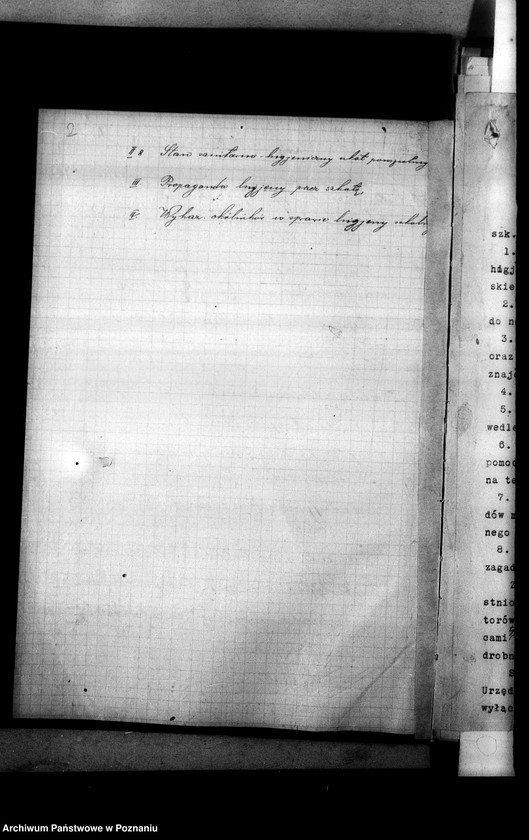 2
II Stan sanitarno-higjeniczny szkół
III. Propaganda higjeny przez szkołę
IV. Wykaz okólników w sprawie higjeny
szk.
1.
higj
skie
2.
do n
3.
oraz
znaj
4.
5.
wedle
6.
pomoc
na te
7.
dów
nego
8.
zagad
stnio
torów
cami
drobn
Urzęd
wyłąc
Archiwum Państwowe w Poznaniu